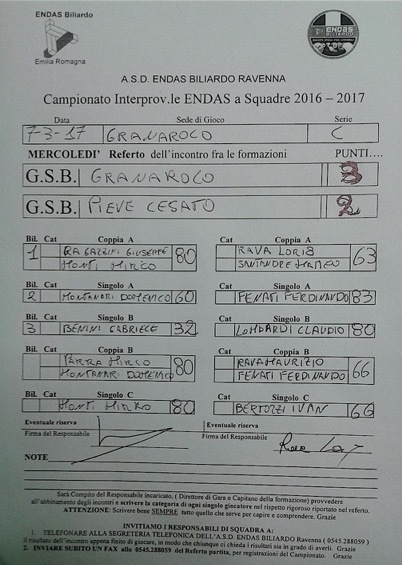 ENDAS Biliardo
Emilia Romagna
ENDAS
A.S.D. ENDAS BILIARDO RAVENNA
Campionato Interprov.le ENDAS a Squadre 2016 – 2017
Data Sede di Gioco Serie
7-3-17 GRANAROLO C
MERCOLEDI' Referto dell'incontro fra le formazioni PUNTI....
G.S.B. GRANAROLO 3
G.S.B. PIEVE CESATO 2
Bil. Cat Coppia A Cat Coppia A
1 GIUSEPPE 80 RAVA LORIS 63
MONTI MIRCO SANTANDREA MATTEO
Bil. Cat Singolo A Cat Singolo A
2 MONTANARI DOMENICO 60 FENATI FERDINANDO 83
Bil. Cat Singolo B Cat Singolo B
3 BENINI GABRIELE 32 LOMBARDI CLAUDIO 80
Bil. Cat Coppia B Cat Coppia B
MIRCO 80 RAVA MAURIZIO 66
MONTANARI DOMENICO FENATI FERDINANDO
Bil. Cat Singolo C Cat Singolo C
MONTI MIRKO 80 BERTOZZI IVAN 66
Eventuale riserva Eventuale riserva
Firma del Responsabile Firma del Responsabile
NOTE
Sarà Compito del Responsabile incaricato, ( Direttore di Gara o Capitano della formazione) provvedere
all'abbinamento degli incontri e scrivere la categoria di ogni singolo giocatore nel rispetto rigoroso riportato nel referto.
ATTENZIONE: Scrivere bene SEMPRE tutto quello che serve per capire e comprendere. Grazie
INVITIAMO I RESPONSABILI DI SQUADRA A:
1. TELEFONARE ALLA SEGRETERIA TELEFONICA DELL'A.S.D. ENDAS BILIARDO RAVENNA ( 0545.288059 )
il risultato dell'incontro appena finite di giocare, in modo che chiunque ci chieda i risultati sia in grado di averli. Grazie
2. INVIARE SUBITO UN FAX allo 0545.288059 del Referto partita, per registrazioni del Campionato. Grazie